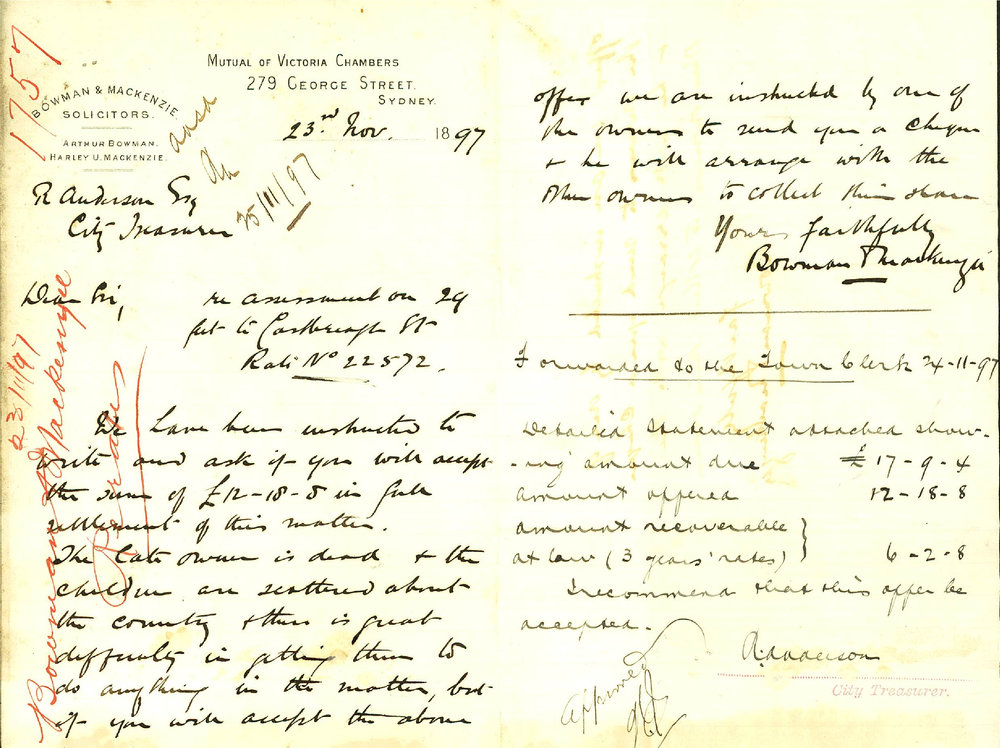 1757
BOWMAN & MACKENZIE.
SOLICITORS.
ARTHUR BOWMAN.
HARLEY U. MACKENZIE.
MUTUAL OF VICTORIA CHAMBERS
279 GEORGE STREET.
SYDNEY.
23rd Nov. 1897
25/11/97
R Anderson Esq
City Treasurer
Dear Sir,
re assessment on 29
feet to Castlereagh St
Rate No 22572.
We have been instructed to
write and ask if you will accept
the sum of £12-18-8 in full
settlement of this matter.
The late owner is dead & the
children are scattered about
the country & there is great
difficulty in getting them to
do anything in the matter, but
if you will accept the above
23/11/97
Bowman & Mackenzie
Re rates
offer we are instructed by one of
the owners to send you a cheque
& he will arrange with the
other owners to collect their share
Yours faithfully
Bowman & Mackenzie
Forwarded to the Town Clerk 24-11-97
Detailed statement attached show-
-ing amount due £17-9-4
amount offered 12-18-8
amount recoverable
at law (3 years' rates) } 6-2-8
I recommend that this offer be
accepted.
R. Anderson
City Treasurer.
Approved